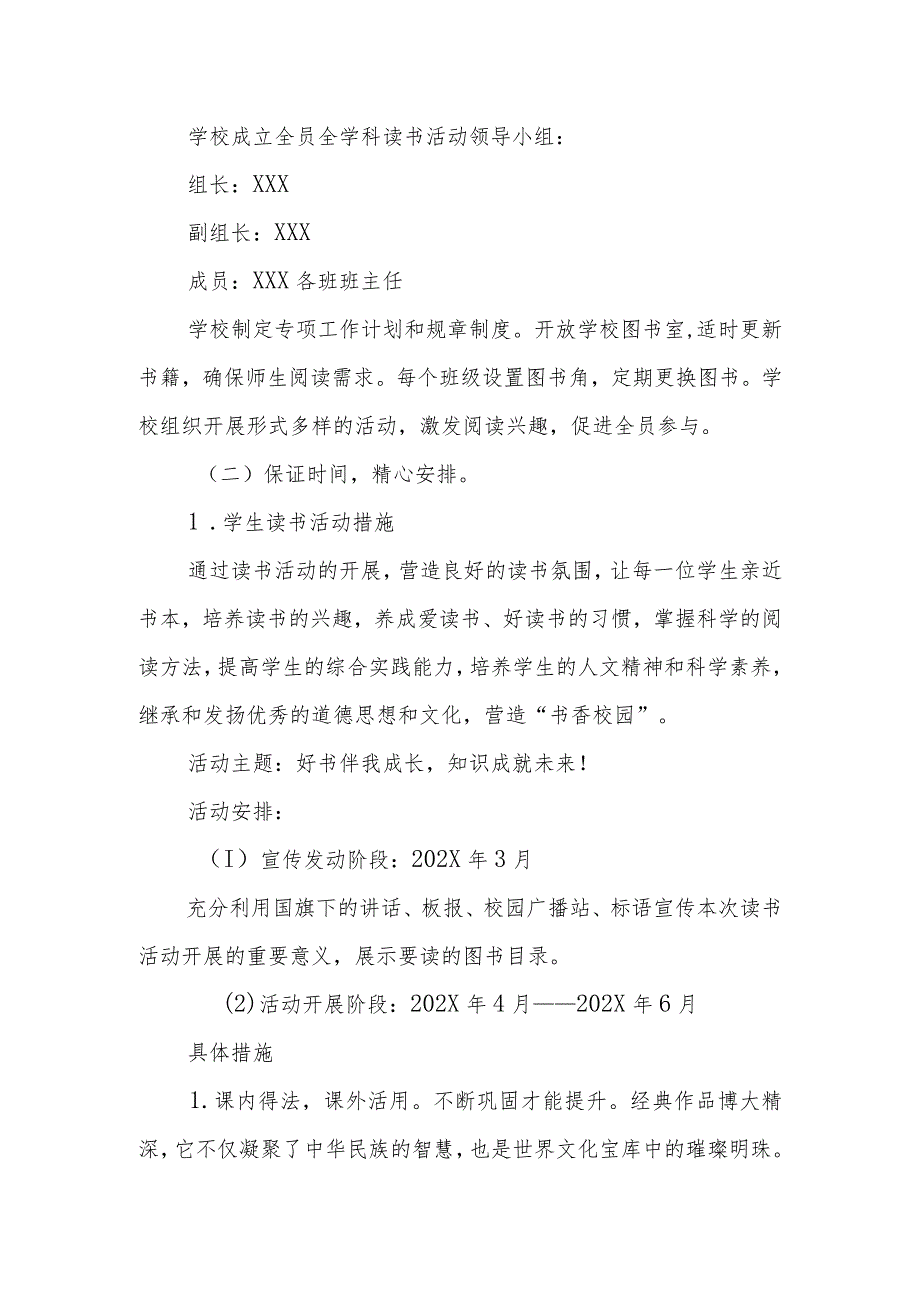 学校成立全员全学科读书活动领导小组：
组长：XXX
副组长：XXX
成员：XXX 各班班主任
学校制定专项工作计划和规章制度。开放学校图书室,适时更新
书籍，确保师生阅读需求。每个班级设置图书角，定期更换图书。学
校组织开展形式多样的活动，激发阅读兴趣，促进全员参与。
（二）保证时间，精心安排。
1 .学生读书活动措施
通过读书活动的开展，营造良好的读书氛围，让每一位学生亲近
书本，培养读书的兴趣，养成爱读书、好读书的习惯，掌握科学的阅
读方法，提高学生的综合实践能力，培养学生的人文精神和科学素养，
继承和发扬优秀的道德思想和文化，营造“书香校园”。
活动主题：好书伴我成长，知识成就未来！
活动安排：
（I）宣传发动阶段：202X 年 3 月
充分利用国旗下的讲话、板报、校园广播站、标语宣传本次读书
活动开展的重要意义，展示要读的图书目录。
(2)活动开展阶段：202X 年 4 月——202X 年 6 月
具体措施
1.课内得法，课外活用。不断巩固才能提升。经典作品博大精
深，它不仅凝聚了中华民族的智慧，也是世界文化宝库中的璀璨明珠。